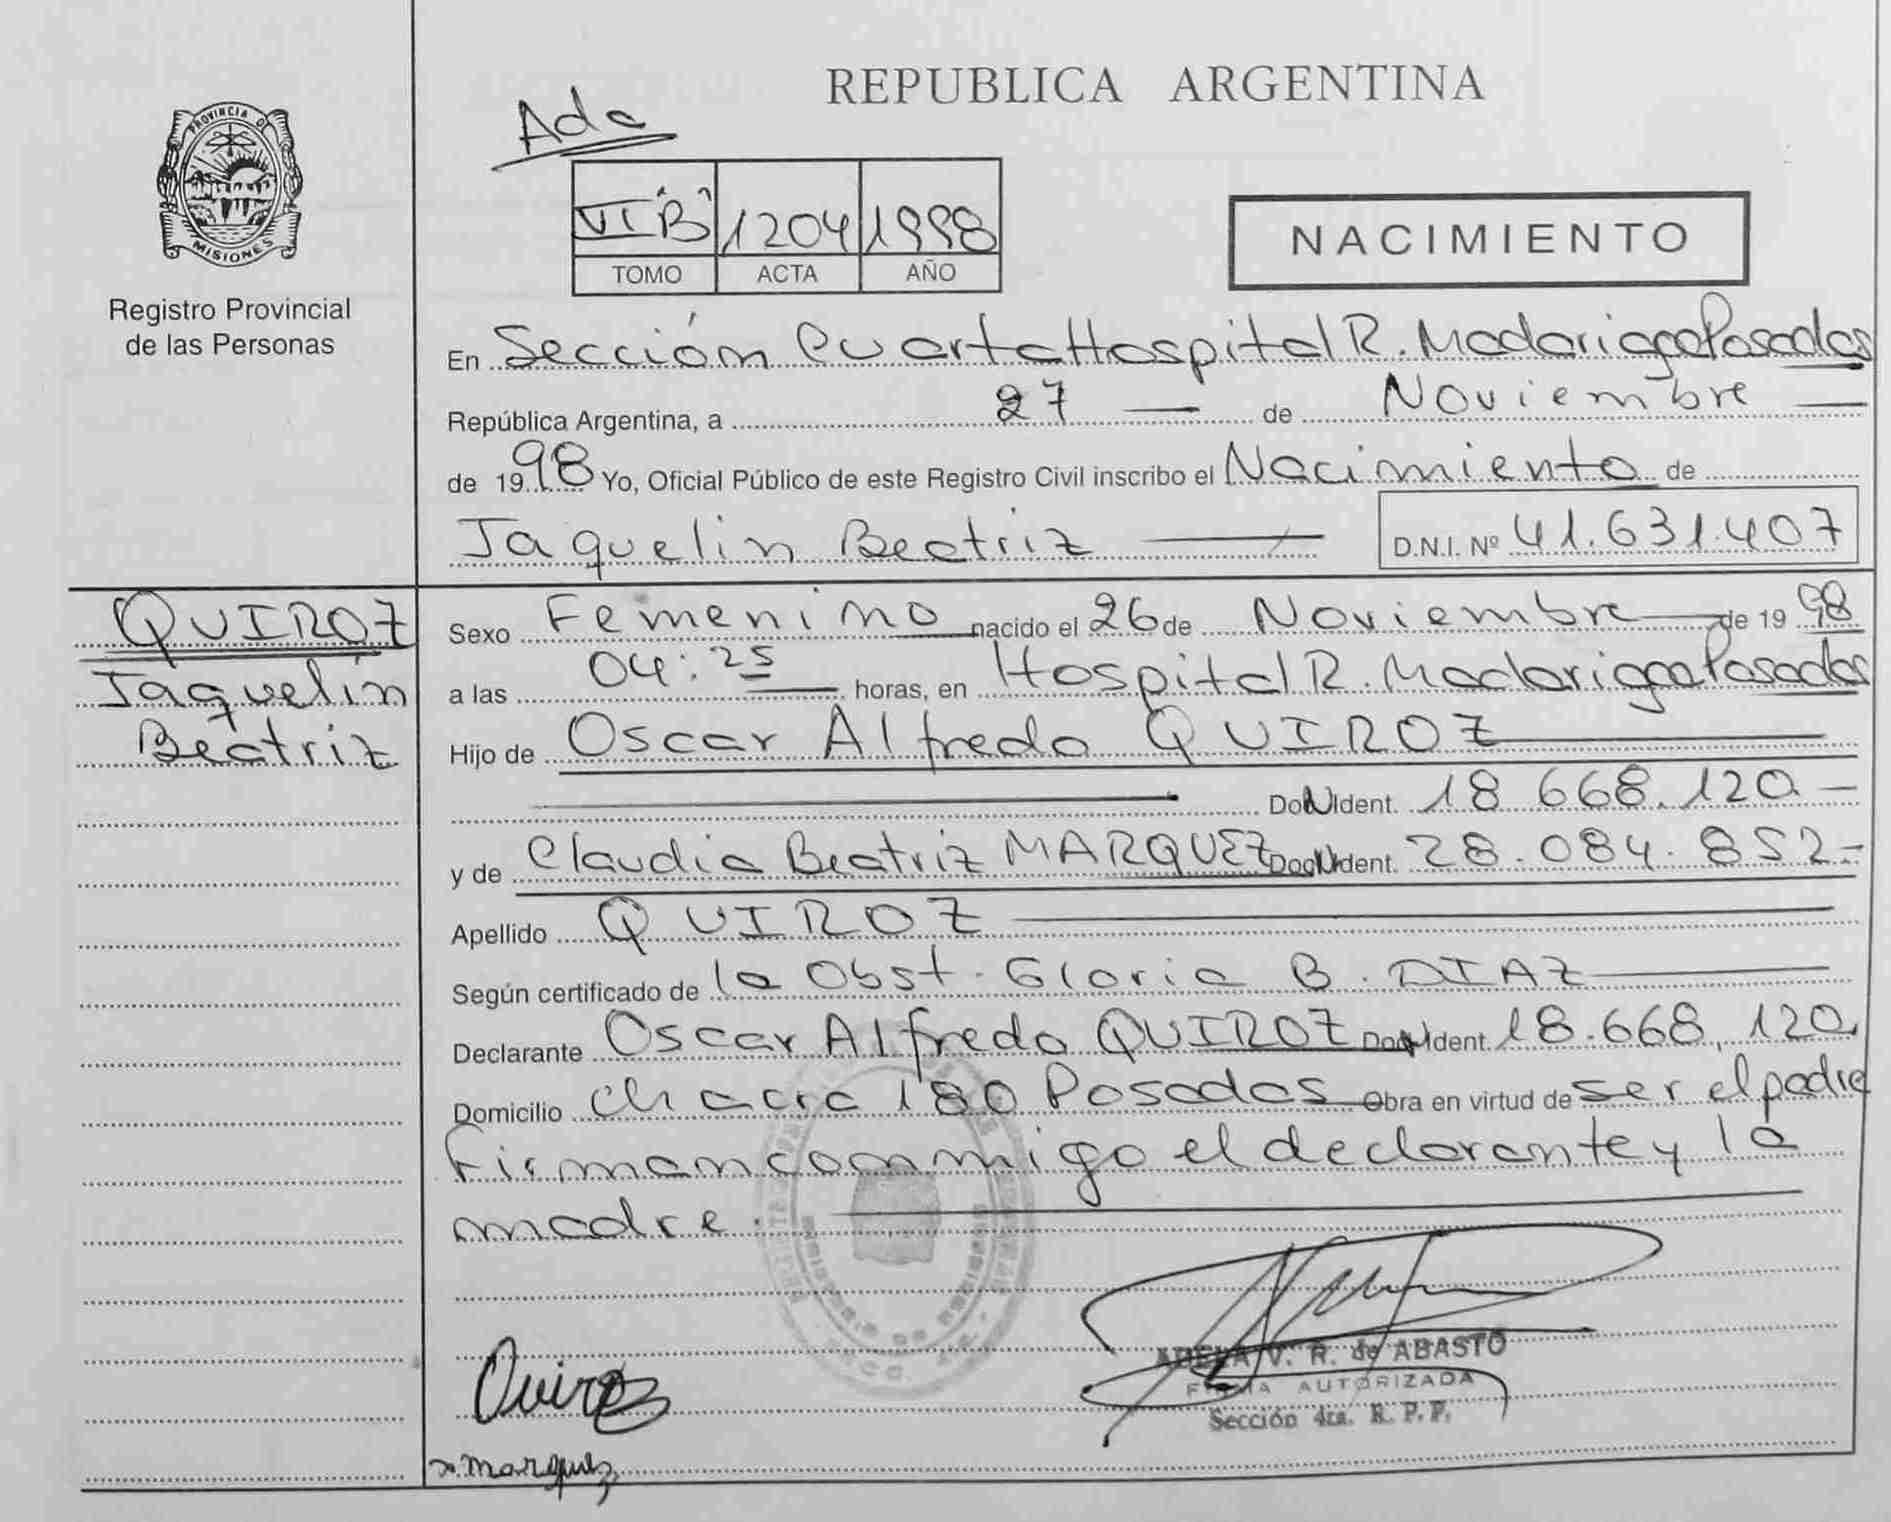 REPUBLICA ARGENTINA
Ada
VI "B" 1204 1998
TOMO ACTA AÑO
NACIMIENTO
PROVINCIA DE
MISIONES
Registro Provincial
de las Personas
En Sección Cuarta Hospital R. Madariaga Posadas
República Argentina, a 27 de Noviembre
de 1998 Yo, Oficial Público de este Registro Civil inscribo el Nacimiento de
Jaquelin Beatriz D.N.I. Nº 41.631.407
QUIROZ
Jaquelin
Beatriz
Sexo Femenino nacido el 26 de Noviembre de 1998
a las 04:25 horas, en Hospital R. Madariaga Posadas
Hijo de Oscar Alfredo QUIROZ
Ident. 18.668.120.-
y de Claudia Beatriz MARQUEZ Ident. 28.084.852-
Apellido QUIROZ
Según certificado de la Obst. Gloria B. DIAZ
Declarante Oscar Alfredo QUIROZ Ident. 18.668.120
Domicilio Chacra 180 Posadas Obra en virtud de ser el padre
Firman conmigo el declarante y la
madre.
Quiroz
ADELA V. R. de ABASTO
FIRMA AUTORIZADA
Sección 4ta. R. P. P.
Marquez